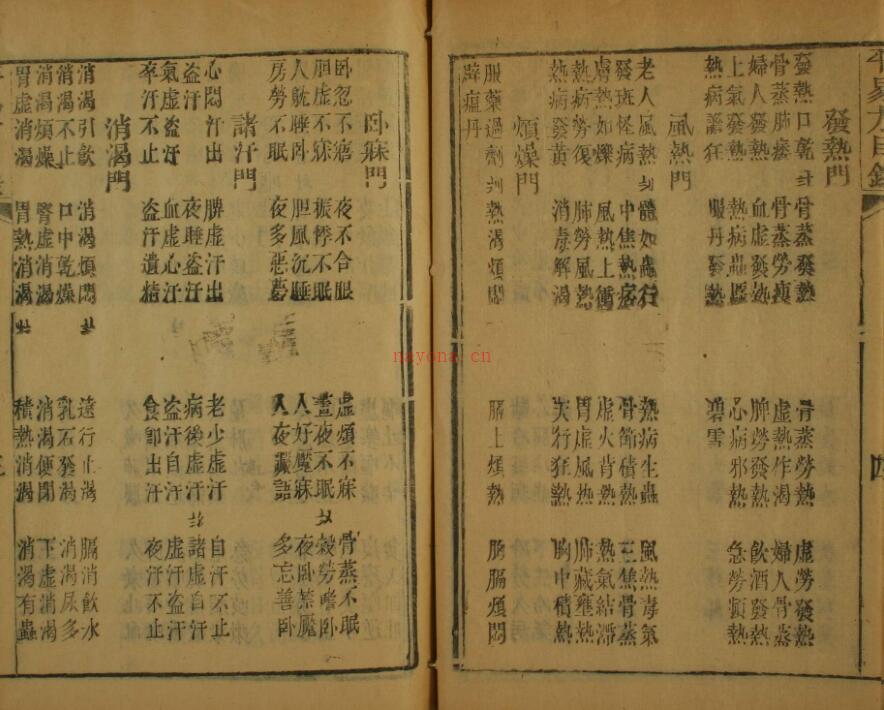 平易方目錄
發熱門
發熱口乾 骨蒸發熱 骨蒸勞熱 虛勞發熱
骨蒸肺痿 骨蒸勞瘦 虛熱作渴 婦人骨蒸
婦人發熱 血虛發熱 脾勞發熱 飲酒發熱
上氣發熱 熱病 心病邪熱 急勞煩熱
熱病譫狂 服丹發熱 碧雪
風熱門
老人風熱 體如蟲行 熱病生蟲 風熱毒氣
發斑怪病 中焦熱痞 骨節積熱 三焦骨蒸
膚熱如爍 風熱上衝 虛火背熱 熱氣結滯
熱病勞復 肺勞風熱 胃虛風熱 肺臟壅熱
熱病發黃 消毒解渴 天行狂熱 胸中積熱
煩燥門
服藥過劑 熱渴煩悶 膈上煩熱 胸膈煩悶
辟瘟丹
臥寐門
臥忽不寤 夜不合眼 虛煩不寐 骨蒸不眠
胆虛不寐 振悸不眠 晝夜不眠 穀勞嗜臥
人躭睡臥 胆風沉睡 人好魘寐 夜臥禁魘
房勞不眠 夜多惡夢 人夜讝語 多忘善臥
諸汗門
心悶汗出 脾虛汗出 老少虛汗 自汗不止
盜汗 夜睡盜汗 病後虛汗 諸虛自汗
氣虛盜汗 血虛心汗 盜汗自汗 虛汗盜汗
卒汗不止 盜汗遺精 食即出汗 夜汗不止
消渴門
消渴引飲 消渴煩悶 遠行止渴 膈消飲水
消渴不止 口中乾燥 乳石發渴 消渴尿多
消渴煩燥 腎虛消渴 消渴便閉 下虛消渴
胃虛消渴 胃熱消渴 積熱消渴 消渴有蟲
nayona.cn